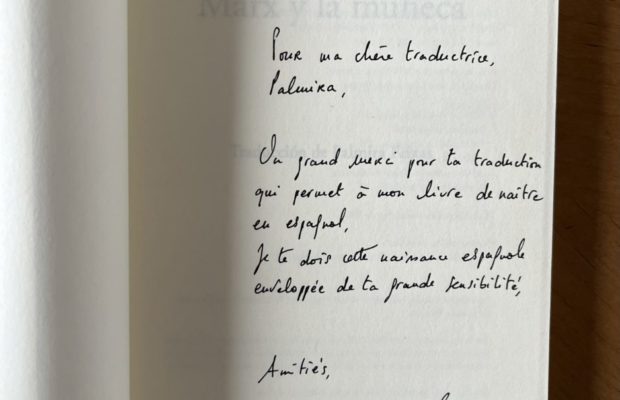 Marx y la muñeca
Pour ma chère traductrice,
Palmira,
Un grand merci pour ta traduction
qui permet à mon livre de naître
en espagnol,
Je te dois cette naissance espagnole
enveloppée de ta grande sensibilité,
Amitiés,